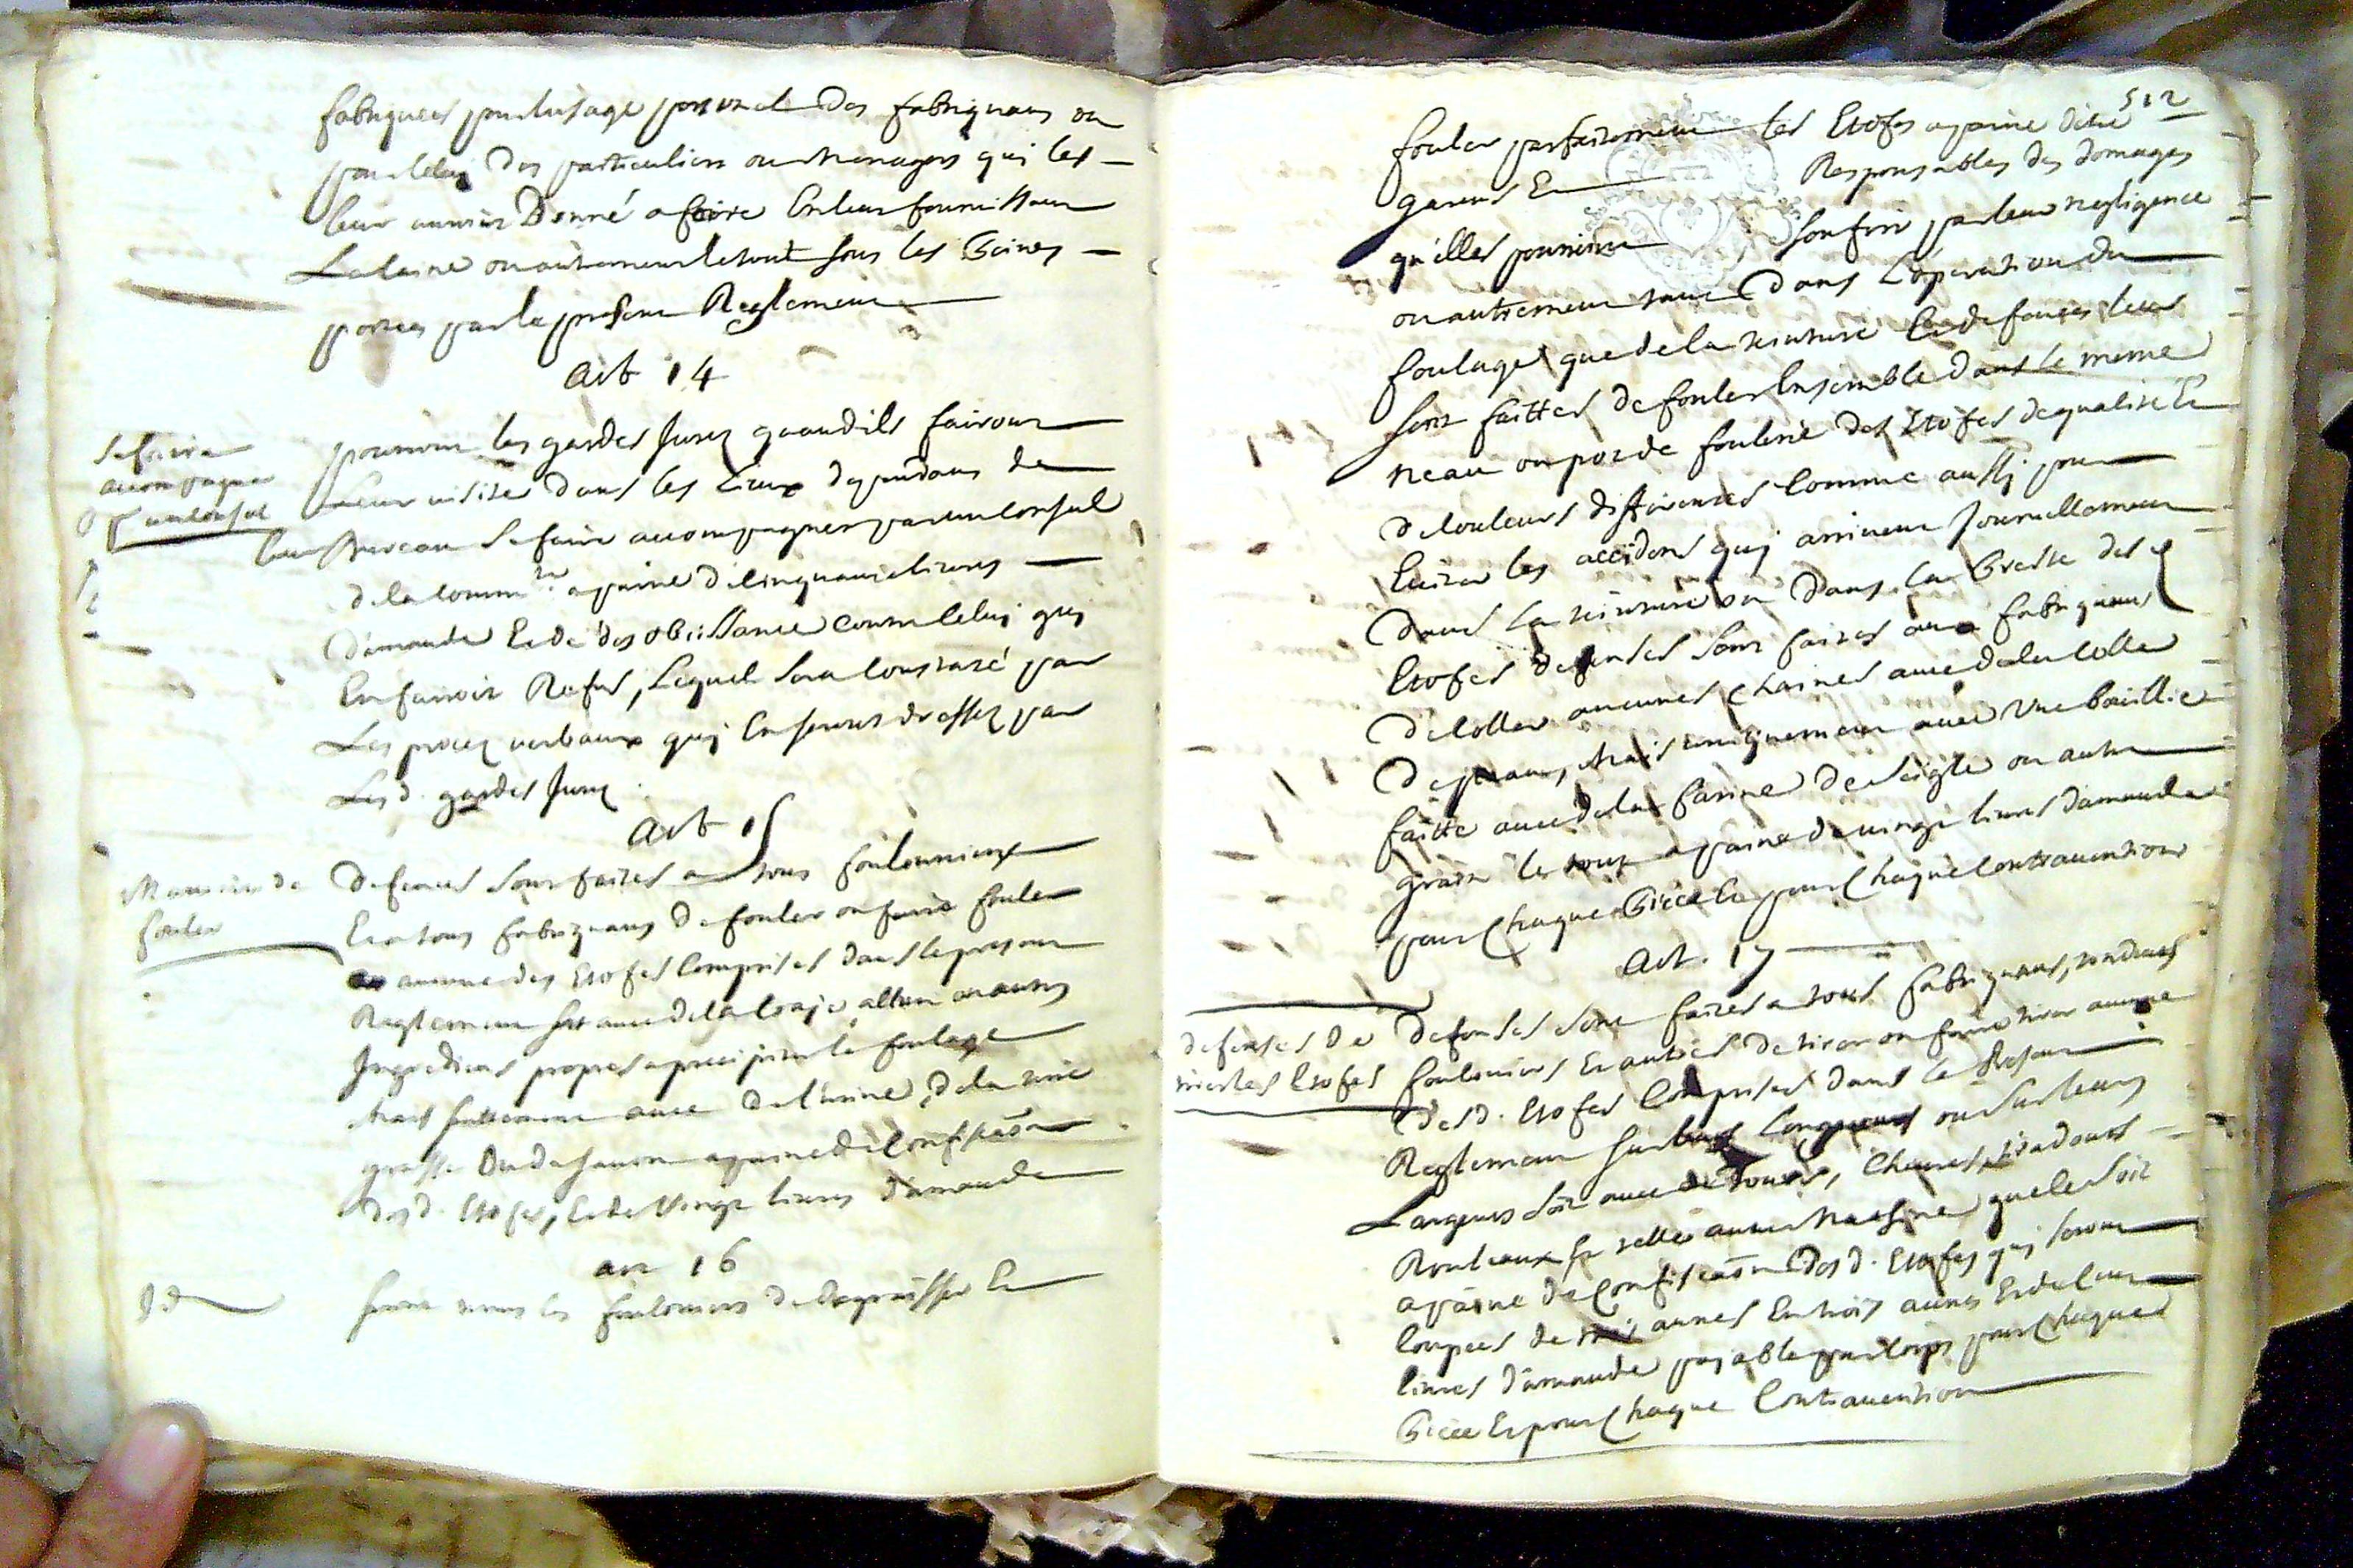 fabriquées pour lusage personel des fabriquans ou
pour celuy des particuliers ou menagers qui les
leur auroint Donné a faire En leur fournissant
La laine ou autrement le tout sous les Peines
portées par le present Reglement
Art 14
Se faire
accompagner
par un consul
pourront les gardes Jurez quand ils fairont
Leur visite dans les Lieux dependans de
leur Bureau Se faire accompagner par un Consul
de la comm.té a peine de cinquante livres
damande Et de desobeissance contre celuy quy
En fairoit Refus, Lequel sera constaté par
Les procez verbaux quy En seront dressez par
Les d. gardes Jurez
Art 15
Maniere de
fouler
defences sont faites a tous foulonniers
Et a tous fabriquans de fouler ou faire fouler
aucune des Etofes Comprises dans le present
Reglement soit avec de la craye allun ou autres
Ingrediens propres a precipiter le foulage
Mais seulement avec de l'urine, de la terre
grasse Ou du savon a peine de Confiscaôn
desd. Etofes, Et de Vingt livres damande
art 16
Id
Seront tenus les foulonniers de degraisser Et
512
fouler parfaitement les Etofes a peine detre
garens Et Responsables des domages
qu'elles pourroint soufrir par leur negligence
ou autrement tant Dans L'operation du
foulage que de la teinture Et defences leur
sont faittes de fouler Ensemble dans le meme
neau ou pot de foulerie des Etofes de qualité Et
de couleurs differentes Comme aussy pour
Eviter les accidens quy arrivent Journellement
Dans la teinture ou Dans la Presse des
Etofes defenses sont faites aux fabriquans
De Coller aucunes Chaines avec de la colle
De peau, Mais uniquement avec Une bouillie
faitte avec de la farine de seigle ou autre
grain le tout a peine de vingt livres damande
pour Chaque Piéce Et pour Chaque Contravention
Art. 17
defenses de
tirer les Etofes
Defenses sont faites a tous fabriquans, tondeurs
foulonniers Et autres de tirer ou faire tirer aucune
Desd. Etofes Comprises dans le Present
Reglement sur leurs Longueurs ou sur leurs
Largeurs soit avec des Tours,
Rouleaux Et telle autre Machine quele soit
a peine de Confiscaôn desd. Etofes quy seront
coupées de trois aunes En trois aunes Et de Cent
livres damande payable par Corps pour Chaque
Piéce Et pour Chaque Contravention